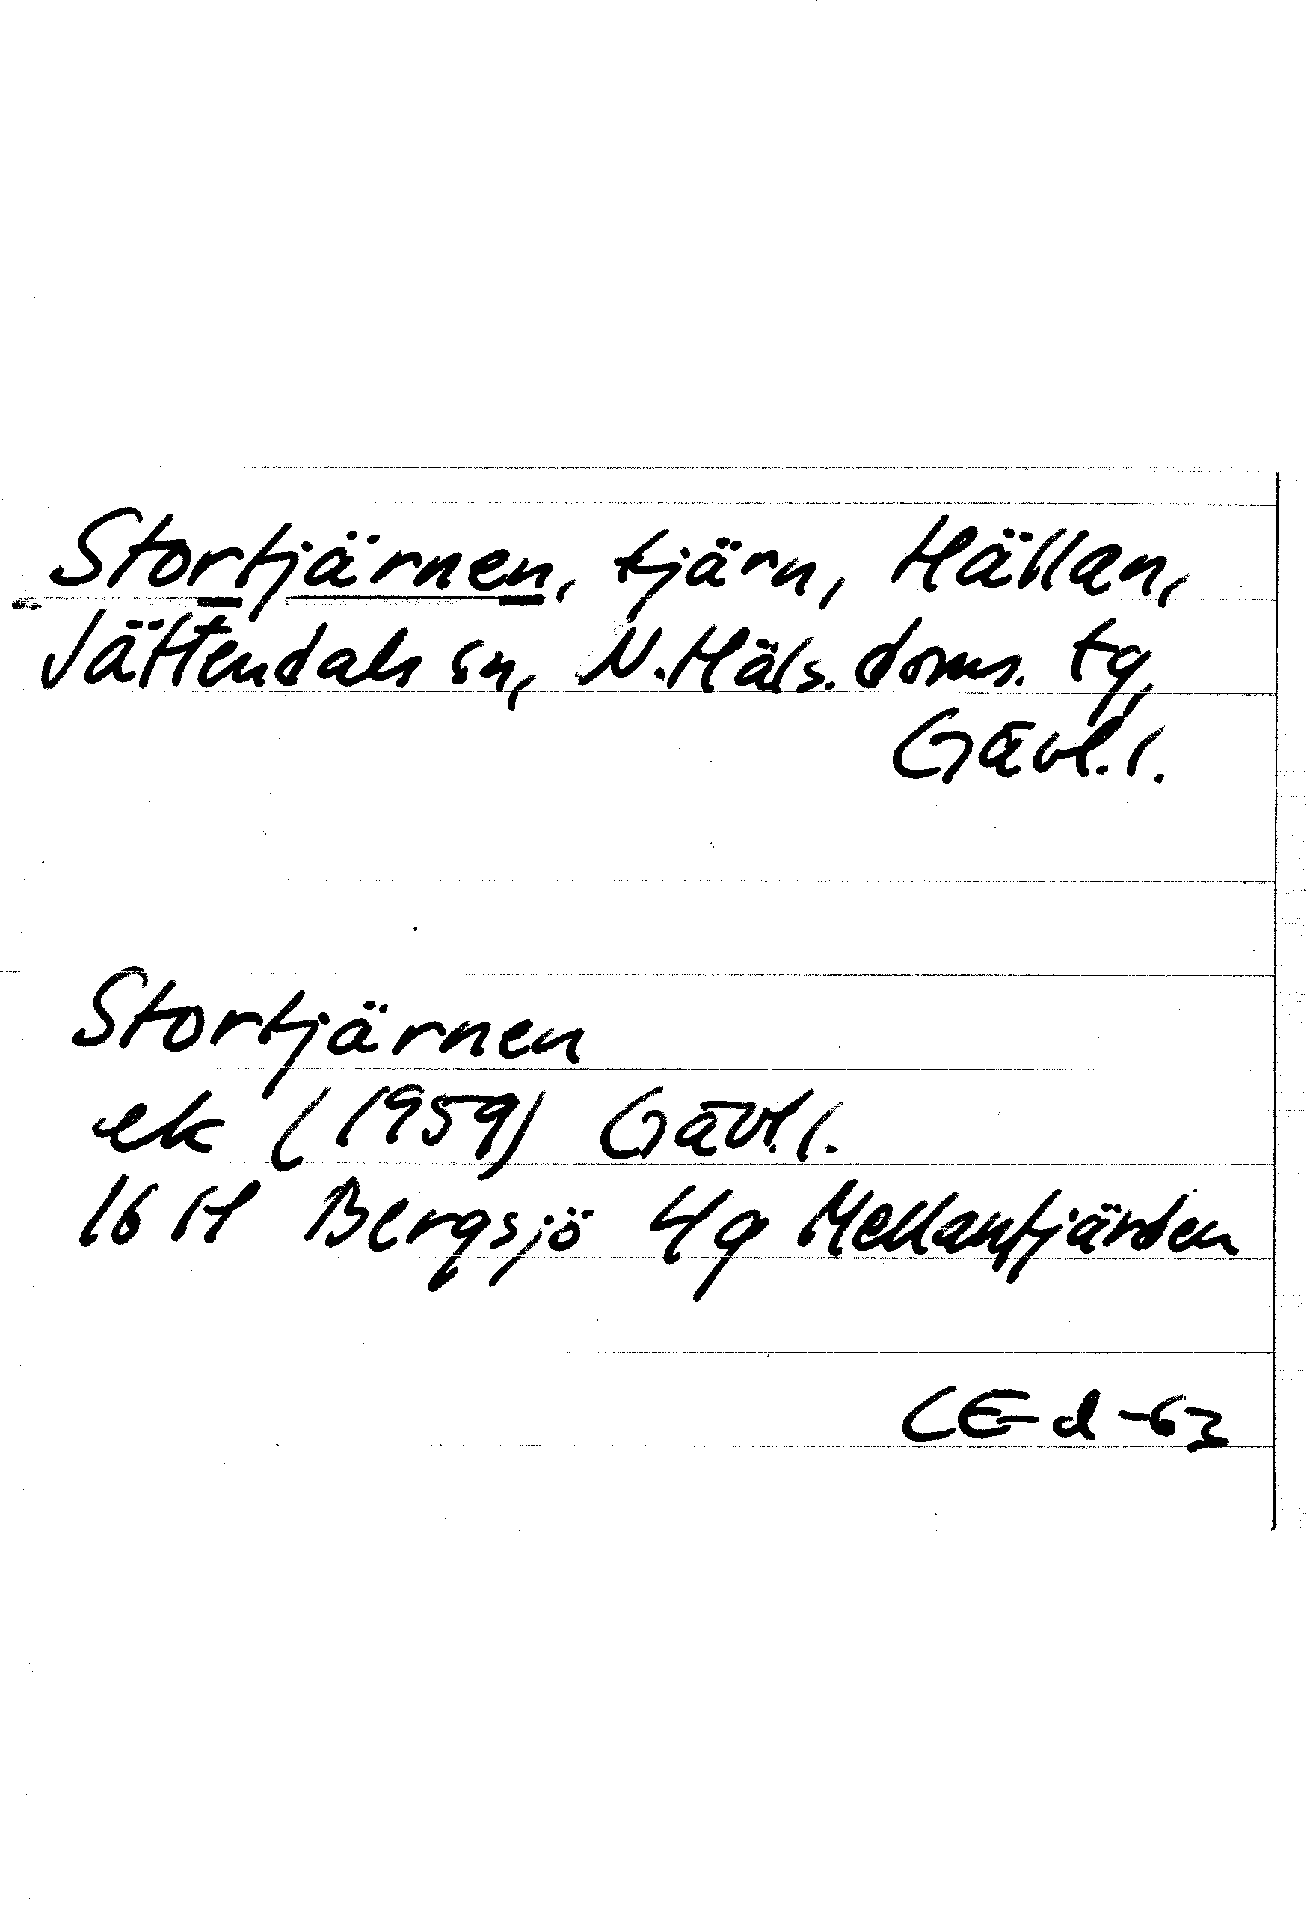 Stortjärnen, tjärn, Hällan,
Jättendals sn, N. Häls. doms. tg,
Gävl. l.
Stortjärnen
ek (1959) Gävl. l.
16 H Bergsjö 4g Mellanfjärden
CEd -63